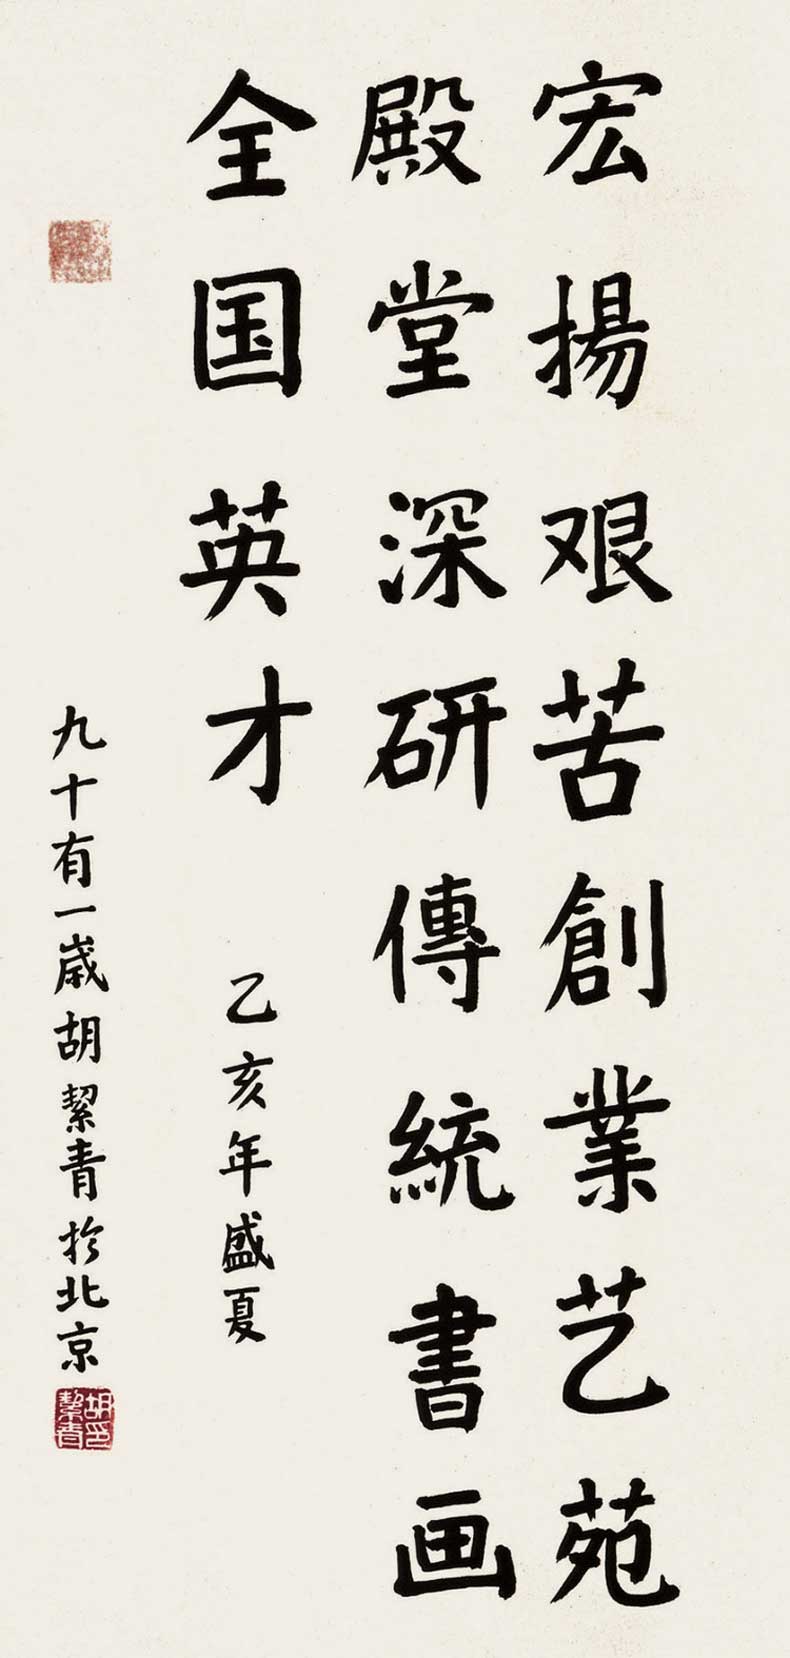 宏揚艰苦創業艺苑
殿堂深研傳統書画
全国英才
乙亥年盛夏
九十有一歳胡絜青於北京
胡絜青印